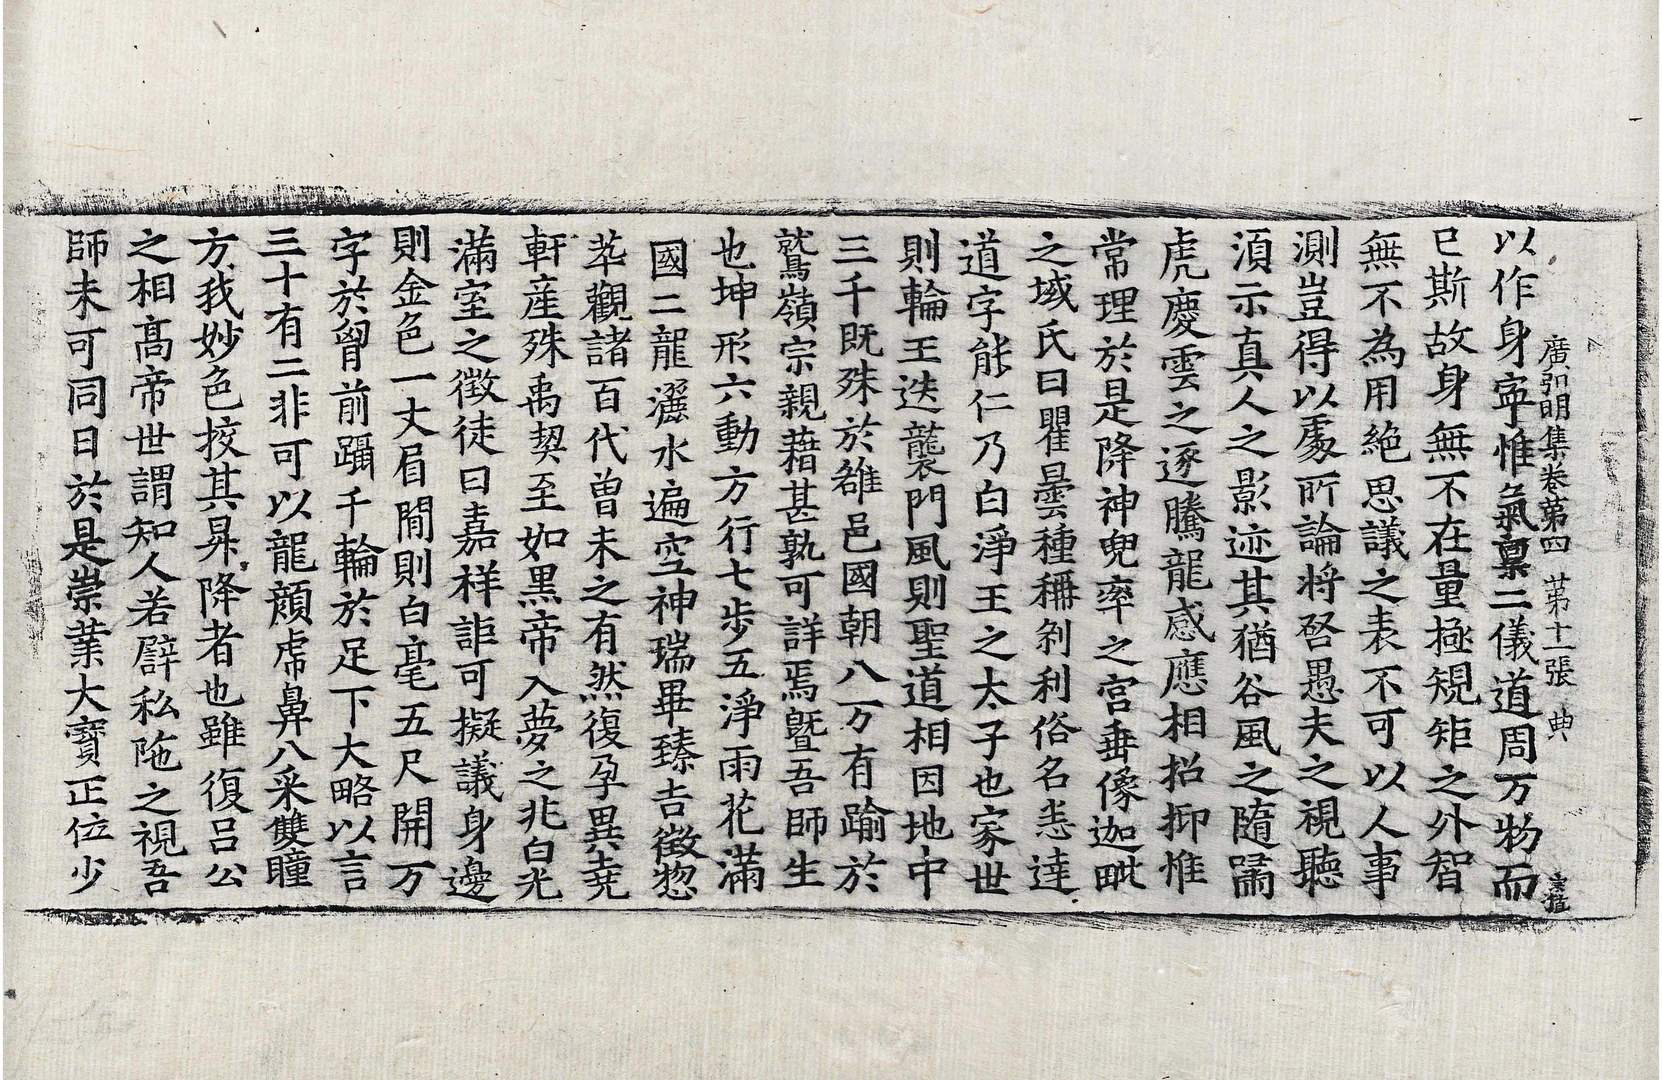 廣弘明集卷第四 第十二張 典
以作身寧惟氣稟二儀道周万物而
已斯故身無不在量極規矩之外智
無不為用絶思議之表不可以人事
測豈得以處所論將啓愚夫之視聽
湏示真人之影迹其猶谷風之隨嘯
虎慶雲之逐騰龍感應相招抑惟
常理於是降神兜率之宮垂像迦毗
之域氏曰瞿曇種稱刹利俗名悉達
道字能仁乃白淨王之太子也家世
則輪王迭襲門風則聖道相因地中
三千既殊於雒邑國朝八万有踰於
鷲嶺宗親藉甚孰可詳焉曁吾師生
也坤形六動方行七步五淨雨花滿
國二龍灑水遍空神瑞畢臻吉徵惣
萃觀諸百代曾未之有然復孕異堯
軒産殊禹契至如黒帝入夢之兆白光
滿室之徵徒曰嘉祥詎可擬議身邊
則金色一丈眉間則白毫五尺開万
字於胷前躡千輪於足下大略以言
三十有二非可以龍顔虎鼻八采雙瞳
方我妙色挍其昇降者也雖復呂公
之相髙帝世謂知人若譬私陁之視吾
師未可同日於是崇業大寳正位少